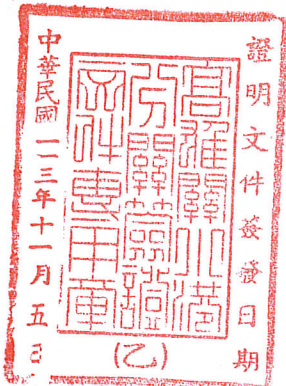 證明文件簽發日期
高雄關小港
分關簽證
文件專用章
(乙)
中華民國一一三年十一月五日